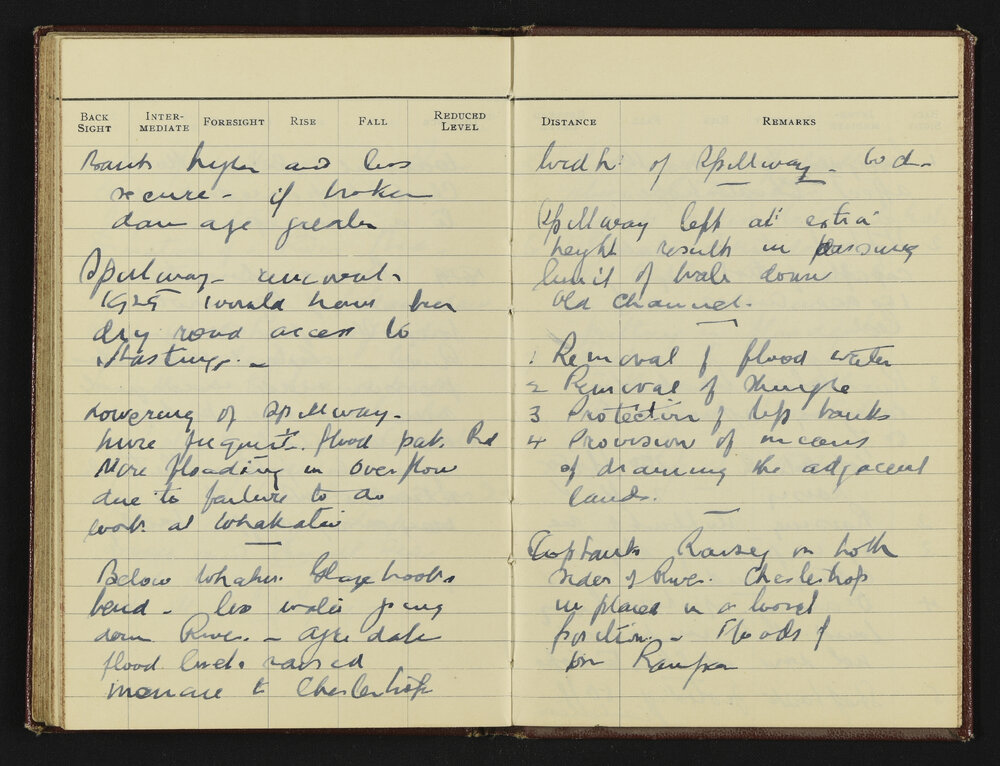 BACK SIGHT
INTER-MEDIATE
FORESIGHT
RISE
FALL
REDUCED LEVEL
Bank higher and less
secure - if broken
damage greater
Spillway - removal -
1925 would have been
dry road access to
Hastings. -
Lowering of Spillway -
more frequent flood
More flooding in overflow
due to failure to do
work at
Below
bend - less water going
down River. -
flood levels raised
menace to Chesterhope
DISTANCE
REMARKS
Width of Spillway -
Spillway left at extra
height results in passing
limit of down
Old Channel. -
1 Removal of flood water
2 Removal of Shingle
3 Protection of banks
4 Provision of means
of draining the adjacent
lands.
Stopbanks Raising on both
sides of River. Chesterhope
in placed in a worst
position -